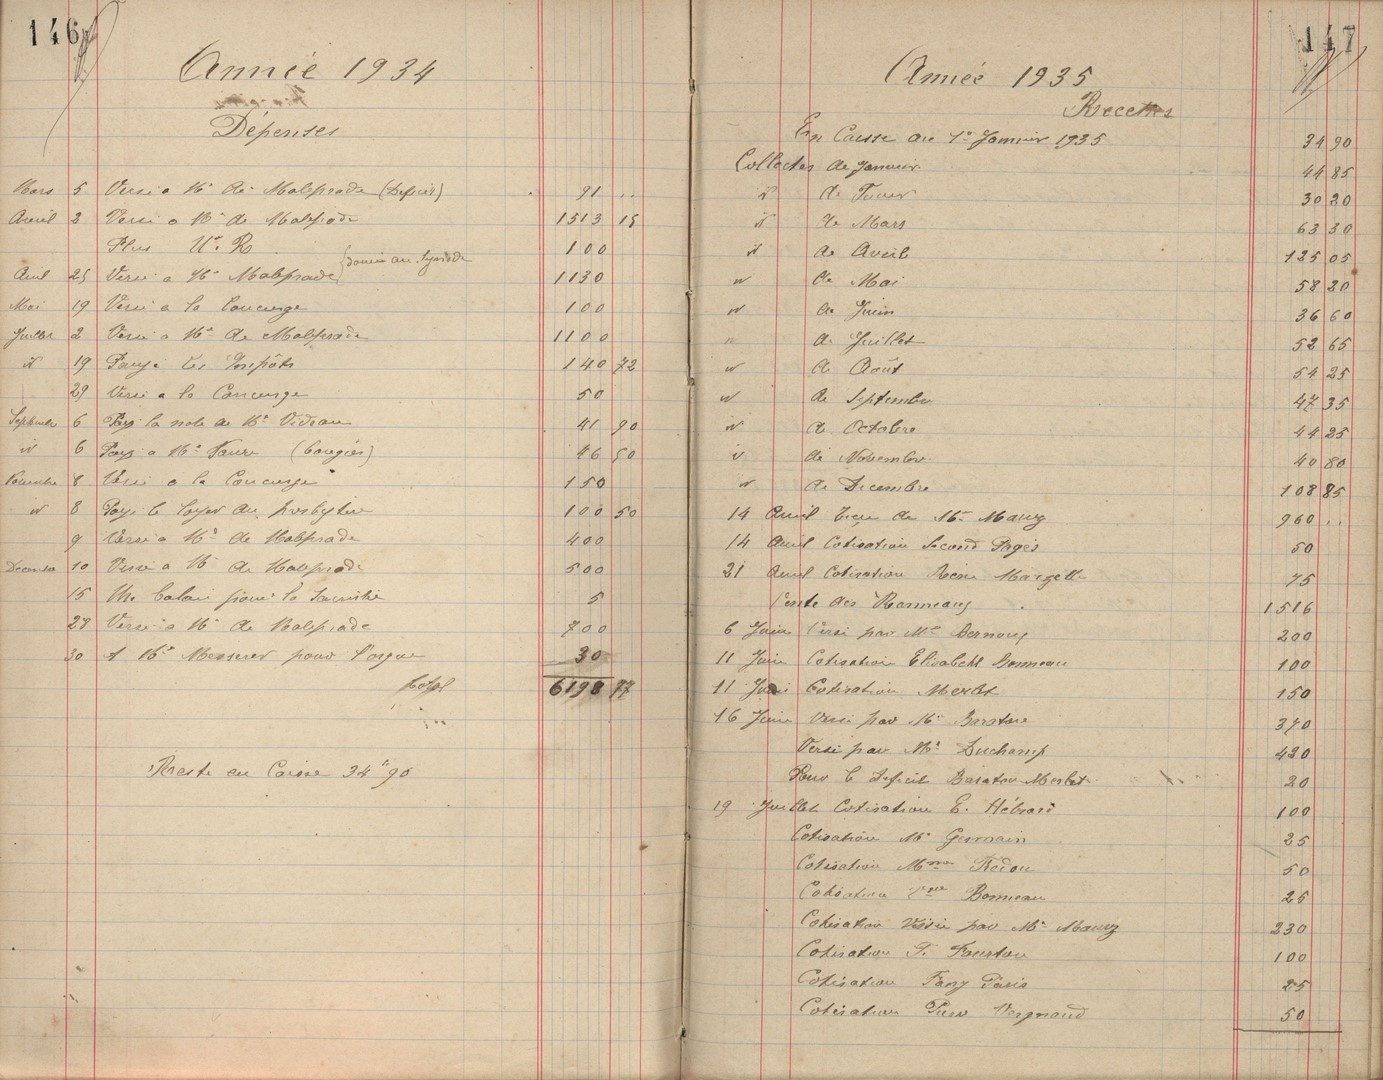 146
Année 1934
Dépenses
Mars 5 Versé à Mr de Malprade (Deficit) 91 ..
Avril 2 Versé a Mr de Malprade 1513 15
Plus Ve R 100
donné au Synode
Avril 25 Versé a Mr Malprade 1130
Mai 19 Versé a la Concierge 100
Juillet 2 Versé a Mr de Malprade 1100
id 19 Payé les Impôts 140 72
29 Versé a la Concierge 50
Septembre 6 Payé la note de Mr Videau 41 90
id 6 Payé a Mr Faure 46 50
8 Versé a la Concierge 150
id 8 Payé le loyer du presbytère 100 50
9 Versé a Mr de Malprade 400
Décembre 10 Versé a Mr de Malprade 500
15 Un balai pour la Sacristie 5
28 Versé a Mr de Malprade 700
30 A Mr Messever pour l'orgue 30
total 6198 77
Reste en Caisse 34 90
147
Année 1935
Recettes
En Caisse au 1er Janvier 1935 34 90
Collectes de Janvier 44 85
id de Fevrier 30 20
id de Mars 63 30
id de Avril 125 05
id de Mai 58 20
id de Juin 36 60
" de Juillet 52 65
id de Août 54 25
id de Septembre 47 35
id de Octobre 44 25
id de Novembre 40 80
id de Decembre 108 85
14 Avril Reçu de Mr Mauz 960 ..
14 Avril Cotisation Second Pagès 50
21 Avril Cotisation Marzelle 75
Vente des Rameaux 1516
6 Juin Versé par Mme 200
11 Juin Cotisation Elisabeth Bonneau 100
11 Juin Cotisation Merlet 150
16 Juin Versé par Mr 370
Versé par Mr Duchamp 420
Pour le Deficit Merlet 20
19 Juillet Cotisation E. Hébrard 100
Cotisation Mr Germain 25
Cotisation Mme Fedou 50
Cotisation Bonneau 25
Cotisation Versée par Mr Mauz 230
Cotisation F. Fourtou 100
Cotisation Fany Paris 25
Cotisation Vergnaud 50